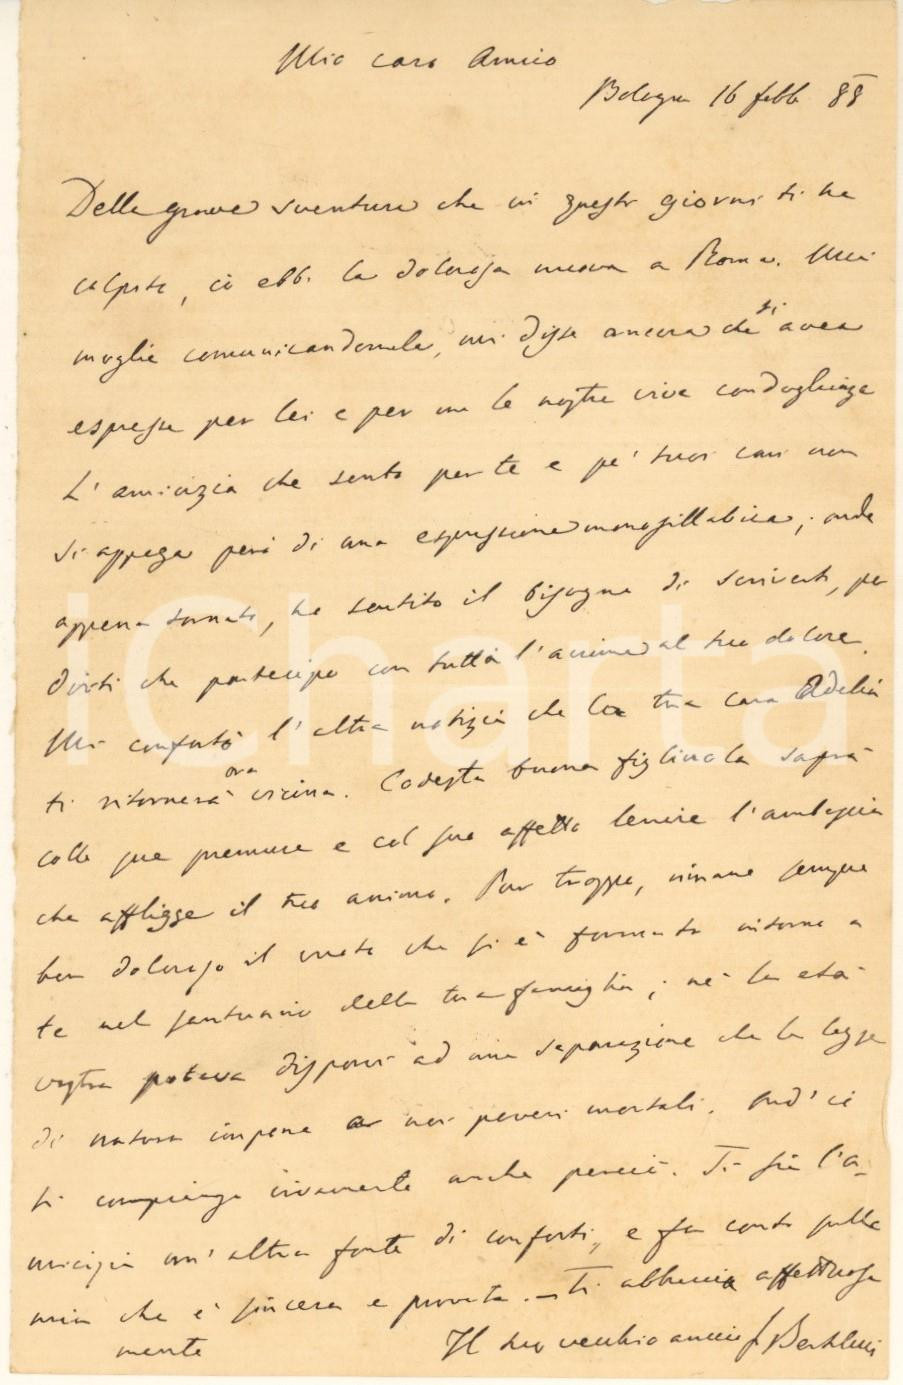 Mio caro Amico
Bologna 16 febb 88
Della grave sventura che in questi giorni ti ha
colpito, io ebbi la dolorosa nuova a Roma. Mia
moglie comunicandomela, mi disse ancora che ti avea
espresse per lei e per me le nostre vive condoglianze
L'amicizia che sento per te e pe' tuoi cari non
si appaga però di una espressione monosillabica; onde
appena tornato, ho sentito il bisogno di scriverti, per
dirti che partecipo con tutta l'anima al tuo dolore.
Mi confortò l'altra notizia che la tua cara Adelia
ti ritornerà ora vicina. Codesta buona figliuola saprà
colle sue premure e col suo affetto lenire l'ambascia
che affligge il tuo animo. Pur troppo, rimane sempre
ben doloroso il vuoto che si è formato intorno a
te nel santuario della tua famiglia; nè la età
vostra poteva disporvi ad una separazione che la legge
di natura impone a noi poveri mortali. Ond' io
ti compiango vivamente anche perciò. Ti sia l'a-
micizia un' altra fonte di conforti, e fa conto sulla
mia che è sincera e provata. — Ti abbraccia affettuosa
mente
Il tuo vecchio amico